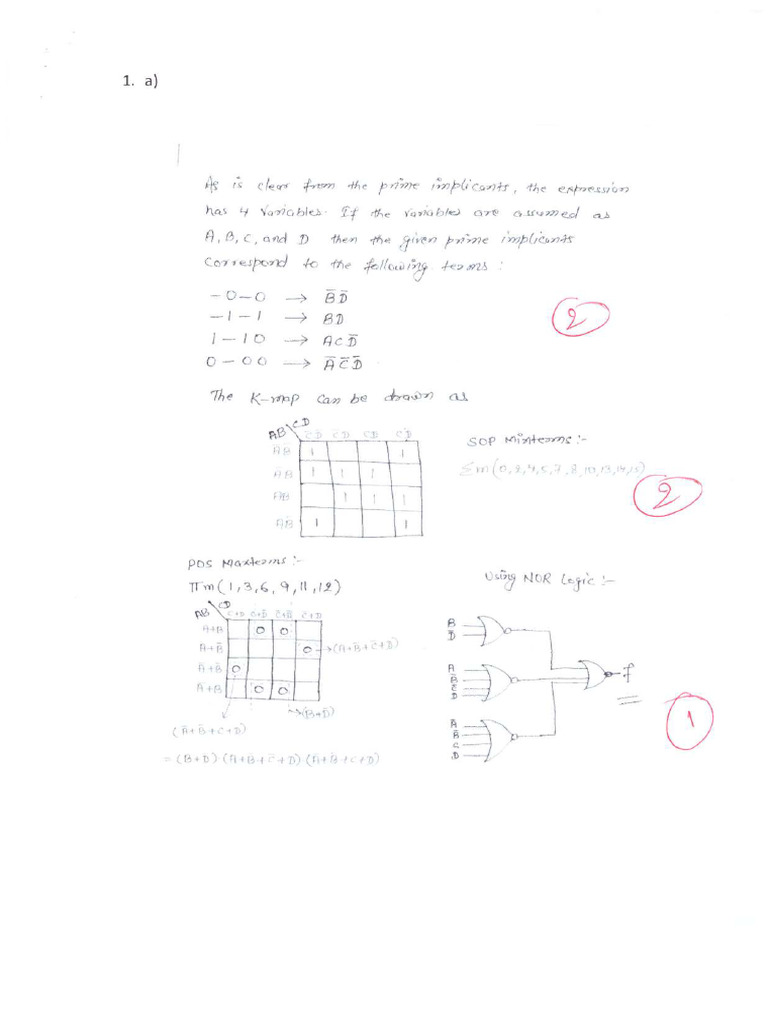 1. a)
As is clear from the prime implicants, the expression
has 4 variables. If the variables are assumed as
A, B, C, and D then the given prime implicants
correspond to the following terms :
-0-0 → B̅D̅
-1-1 → BD
1-10 → ACD̅
0-00 → A̅C̅D̅
2
The K-map can be drawn as
AB\CD C̅D̅ C̅D CD CD̅
A̅B̅ 1 1
A̅B 1 1 1
AB 1 1 1
AB̅ 1 1
SOP Minterms :-
Σm(0,2,4,5,7,8,10,13,14,15)
2
POS Maxterms :-
πm(1,3,6,9,11,12)
AB\CD C+D C+D̅ C̅+D̅ C̅+D
A+B 0 0
A+B̅ 0 → (A+B̅+C̅+D)
A̅+B̅ 0
A̅+B 0 0
(B+D̅)
(A̅+B̅+C+D)
= (B+D̅) (A+B̅+C̅+D) (A̅+B̅+C+D)
Using NOR Logic :-
B
D̅
A
B̅
C̅
D
A̅
B̅
C
D
f
1